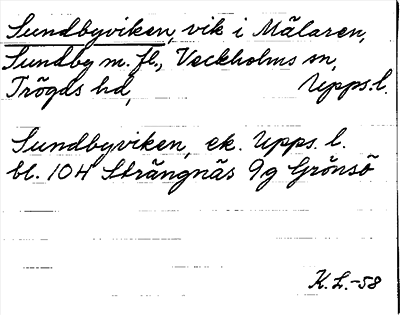 Sundbyviken, vik i Mälaren,
Sundby m. fl., Veckholms sn,
Trögds hd, Upps. l.
Sundbyviken, ek. Upps. l.
bl. 104 Strängnäs 9g Grönsö
K. L. -58